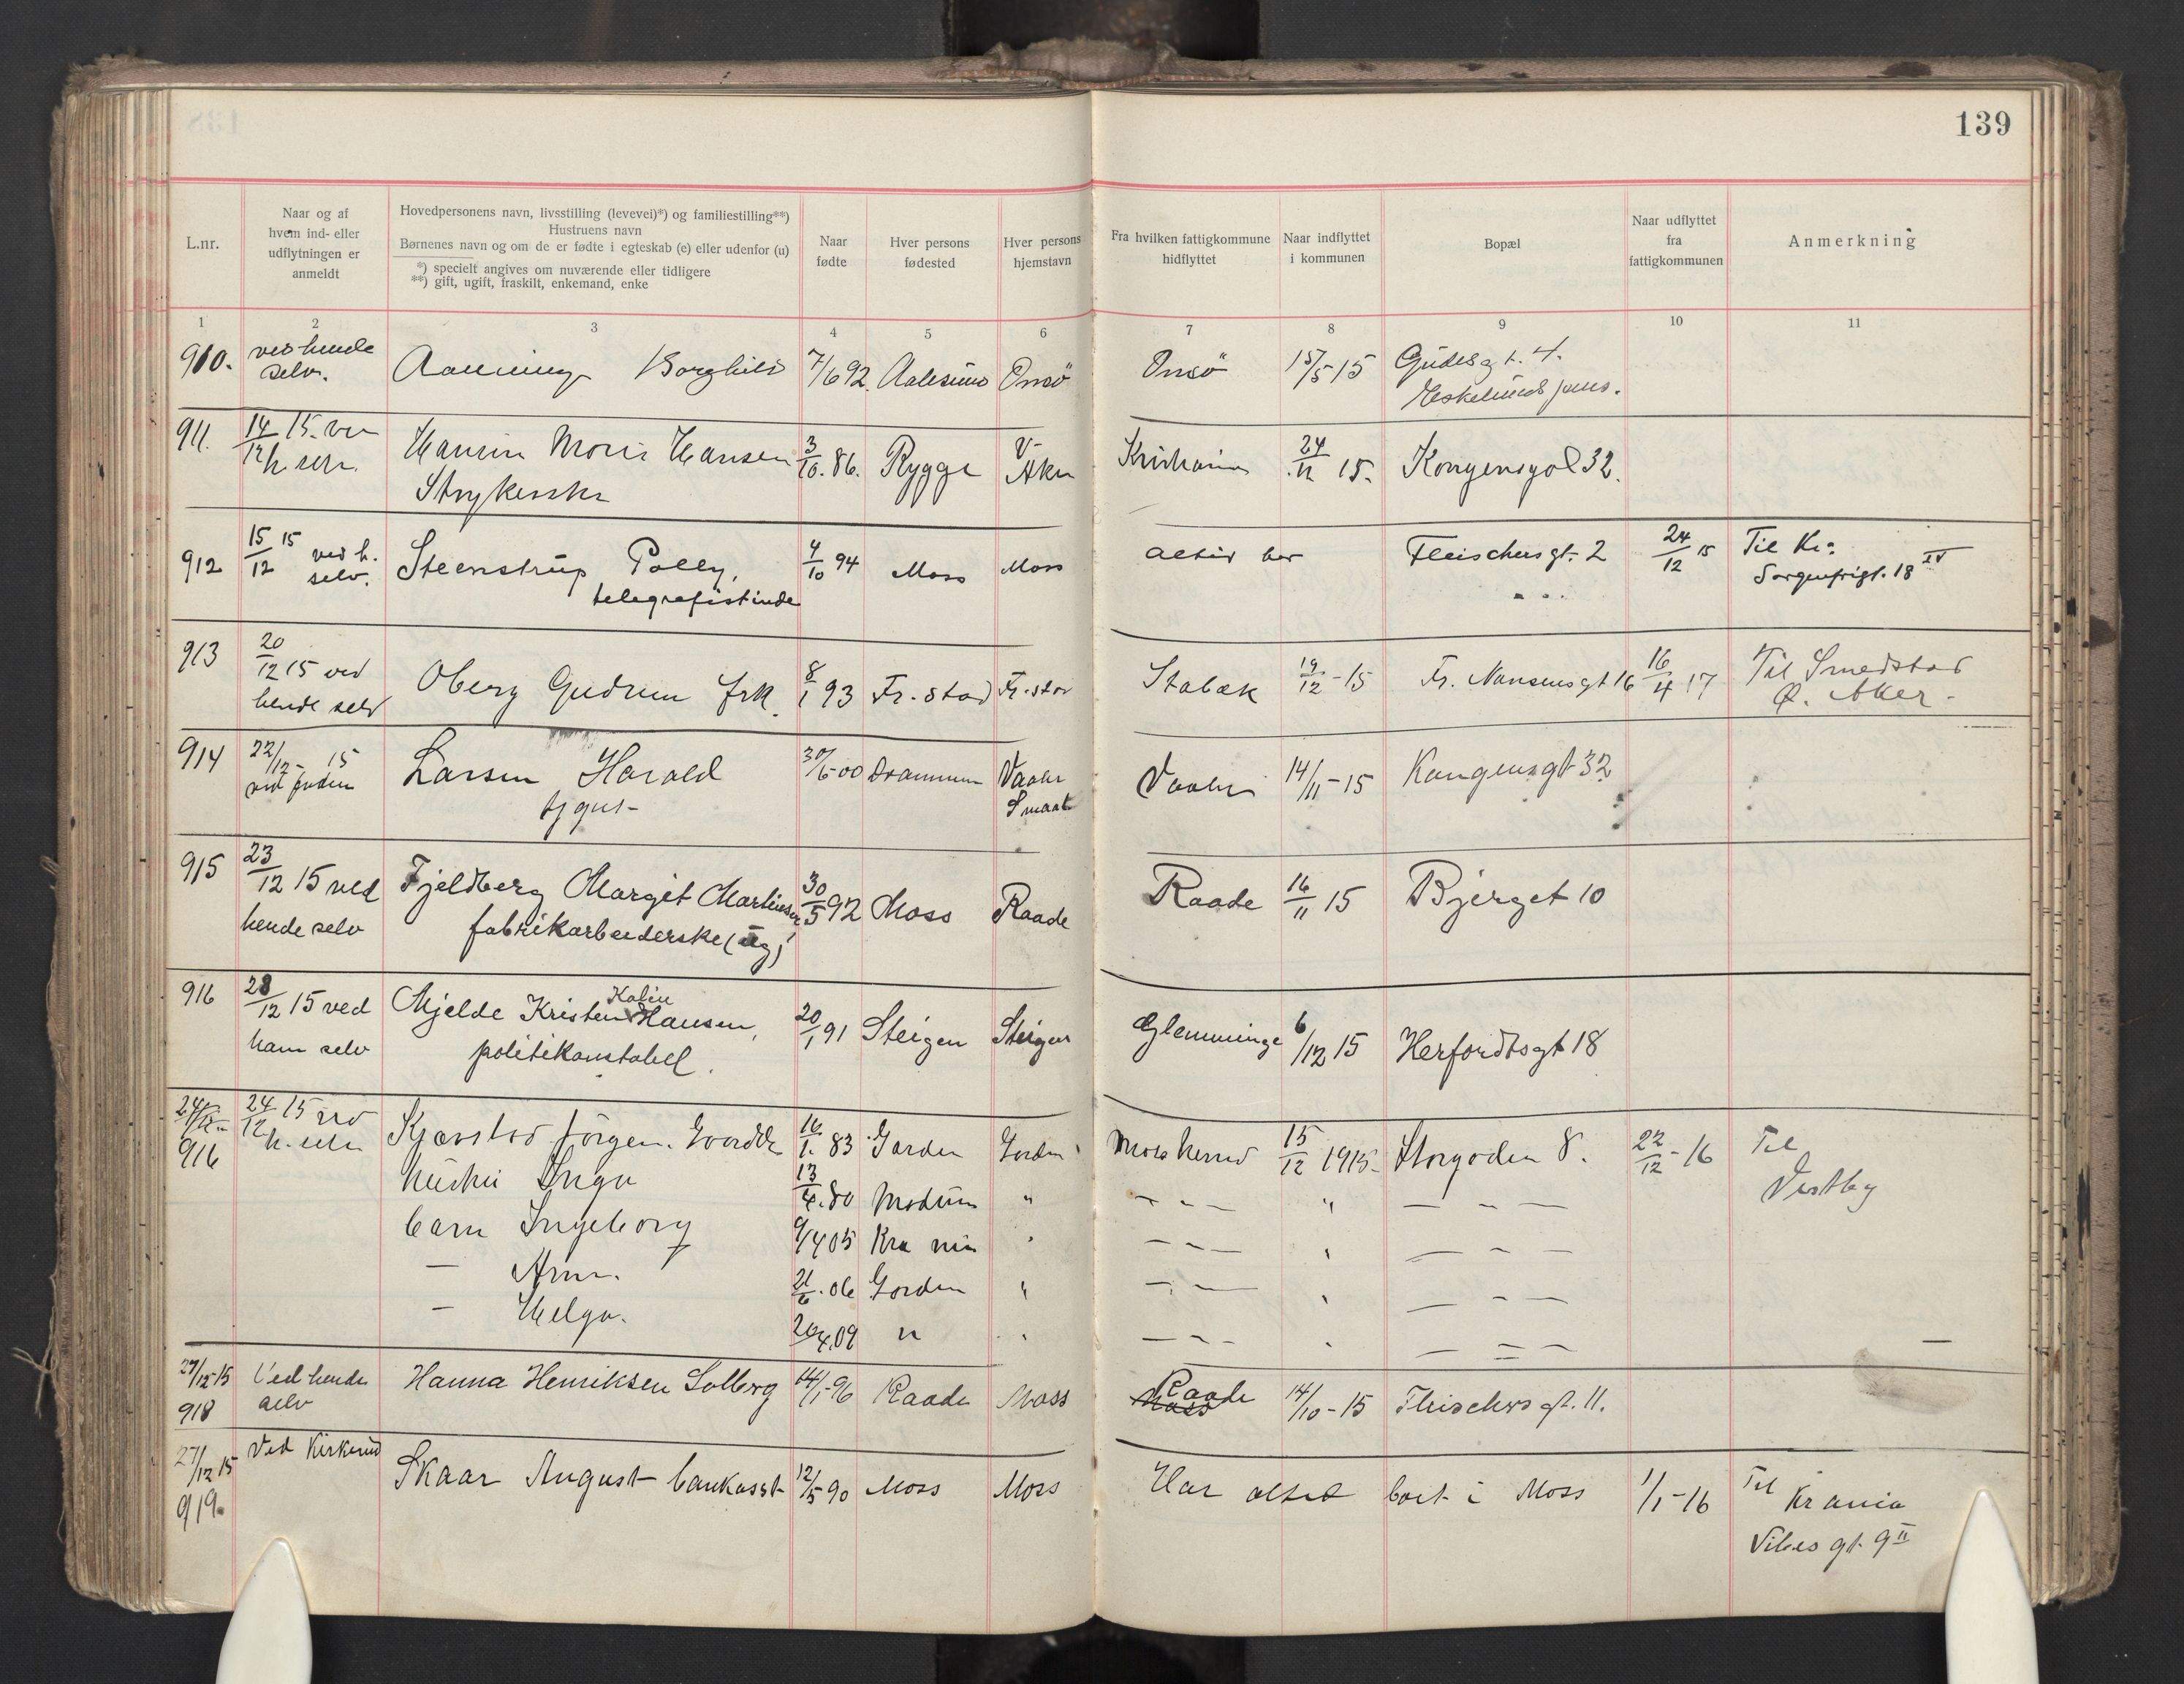 139
L.nr.
Naar og af
hvem ind- eller
udflytningen er
anmeldt
Hovedpersonens navn, livsstilling (levevei)*) og familiestilling**)
Hustruens navn
Børnenes navn og om de er fødte i egteskab (e) eller udenfor (u)
*) specielt angives om nuværende eller tidligere
**) gift, ugift, fraskilt, enkemand, enke
Naar
fødte
Hver persons
fødested
Hver persons
hjemstavn
Fra hvilken fattigkommune
hidflyttet
Naar indflyttet
i kommunen
Bopæl
Naar udflyttet
fra
fattigkommunen
Anmerkning
1 2 3 4 5 6 7 8 9 10 11
910. ved hende
selv.
Borghild 7/6 92 Aalesund Onsö Onsö 15/5 15 Gudesgt. 4.
911. 14/12 15. ved
h. selv.
Hansen Hansen 3/10. 86. Rygge V-
Aker
Kristiania 24/11 15. Kongensgd 32.
Strykerske
912 15/12 15 ved h.
selv.
Steenstrup Polly, 4/10 94 Moss Moss altid her Fleischersgt. 2 24/12 15 Til Kr.a
Sorgenfrigt. 18 IV
telegrafistinde
913 20/12 15 ved
hende selv
Oberg Gudrun frk. 8/1 93 Fr.stad Fr.stad Stabæk 19/12-15 Fr. Nansensgt 16 16/4 17 Til Smedstad
Ø. Aker-
914 22/12- 15
ved
Larsen Harald 30/6-00 Drammen Vaaler
Smaal
Vaaler 14/11-15 Kongensgt 32
tjgut-
915 23/12 15 ved
hende selv
Fjeldberg Margit Martinsen 30/5 92 Moss Raade Raade 16/11 15 Bjerget 10
fabrikarbeiderske (ug)
916 28/12 15 ved
ham selv
Mjelde Kristen Kolin Hansen, 20/1 91 Steigen Steigen Glemminge 6/12 15 Herfordtsgt 18
politikonstabel.
24/12-
916
24/12 15 ved
h. selv
Jörgen. 16/1. 83 Jorden 15/12 1915. Storgaden 8. 22/12-16 Til
Vestby
Hustru Inga 13/4. 80 Modum "
barn Ingeborg 9/4 05 Kra nia "
— 21/6. 06 "
— Helga. 20/4 09 "
27/12-15
918
Ved hende
selv
Hanna Henriksen Solberg 14/1-96 Raade Moss Raade
Moss
14/10-15 Fleischers gt. 11.
27/12 15
919.
Ved Kirkerud
Skaar August bankasst 12/5 90 Moss Moss Har altid boet i Moss 1/1-16 Til
Krania
Vibes gt. 9 II